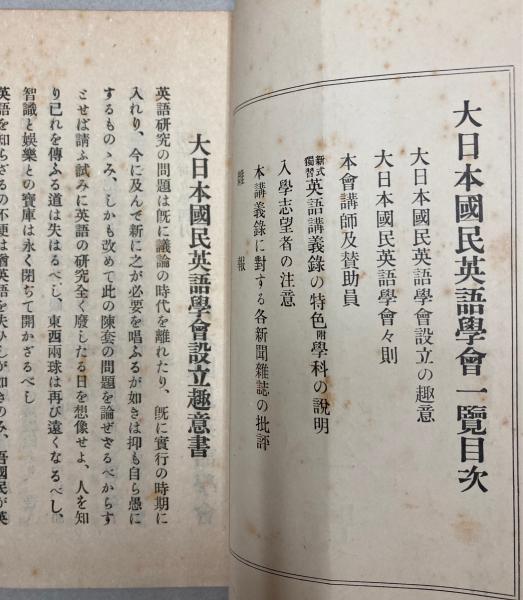 大日本國民英語學會一覽目次
大日本國民英語學會設立の趣意
大日本國民英語學會々則
本會講師及賛助員
新式獨習英語講義錄の特色附學科の說明
入學志望者の注意
本講義錄に對する各新聞雜誌の批評
雜報
大日本國民英語學會設立趣意書
英語研究の問題は旣に議論の時代を離れたり、旣に實行の時期に
入れり、今に及んで新に之が必要を唱ふるが如きは抑も自ら愚に
するものゝみ、しかも改めて此の陳套の問題を論ぜざるべからず
とせば請ふ試みに英語の硏究全く廢したる日を想像せよ、人を知
り已れを傳ふる道は失はるべし、東西兩球は再び遠くなるべし、
智識と娛樂との寶庫は永く閉ちて開かざるべし
英語を知らざるの不便は猶英語を失ひしが如きのみ、吾國民が英